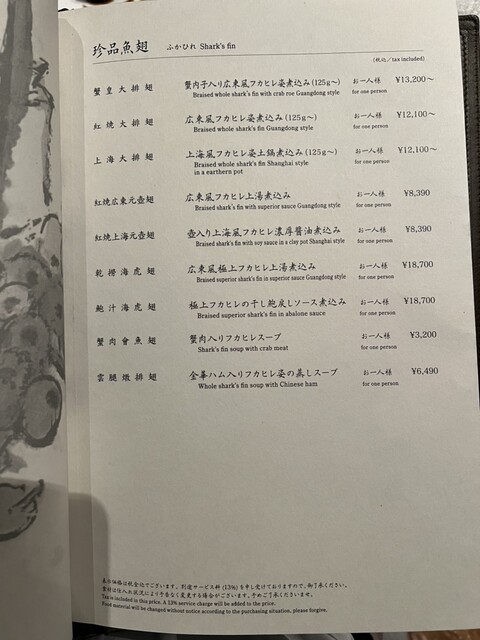 珍品魚翅 ふかひれ Shark's fin
(税込/tax included)
蟹皇大排翅 蟹肉子入り広東風フカヒレ姿煮込み(125g〜) お一人様 ¥13,200〜
Braised whole shark's fin with crab roe Guangdong style for one person
紅焼大排翅 広東風フカヒレ姿煮込み(125g〜) お一人様 ¥12,100〜
Braised whole shark's fin Guangdong style for one person
上海大排翅 上海風フカヒレ姿土鍋煮込み(125g〜) お一人様 ¥12,100〜
Braised whole shark's fin Shanghai style for one person
in a earthern pot
紅焼広東元壺翅 広東風フカヒレ上湯煮込み お一人様 ¥8,390
Braised shark's fin with superior sauce Guangdong style for one person
紅焼上海元壺翅 壺入り上海風フカヒレ濃厚醤油煮込み お一人様 ¥8,390
Braised shark's fin with soy sauce in a clay pot Shanghai style for one person
乾撈海虎翅 広東風極上フカヒレ上湯煮込み お一人様 ¥18,700
Braised superior shark's fin in superior sauce Guangdong style for one person
鮑汁海虎翅 極上フカヒレの干し鮑戻しソース煮込み お一人様 ¥18,700
Braised superior shark's fin in abalone sauce for one person
蟹肉會魚翅 蟹肉入りフカヒレスープ お一人様 ¥3,200
Shark's fin soup with crab meat for one person
雲腿燉排翅 金華ハム入りフカヒレ姿の蒸しスープ お一人様 ¥6,490
Whole shark's fin soup with Chinese ham for one person
表示価格は税金込でございます。別途サービス料(13%)を申し受けておりますので、御了承ください。
食材は仕入れ状況により予告なく変更する場合がございます。予めご了承くださいませ。
Tax is included in this price. A 13% service charge will be added to the price.
Food material will be changed without notice according to the purchasing situation, please forgive.